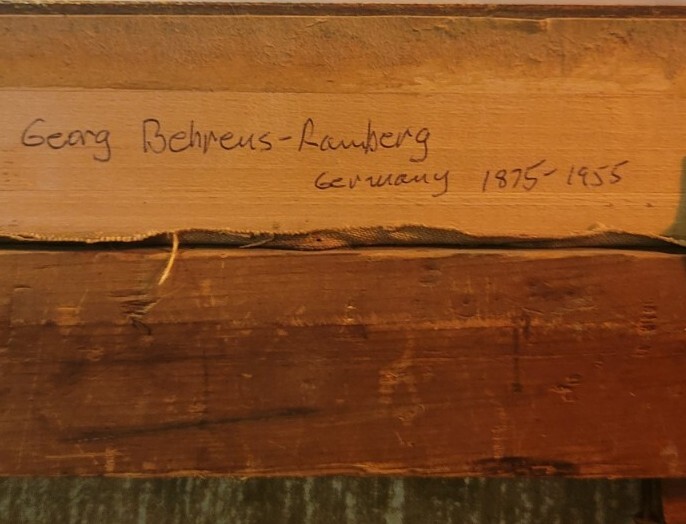 Georg Behrens-Ramberg
Germany 1875-1955